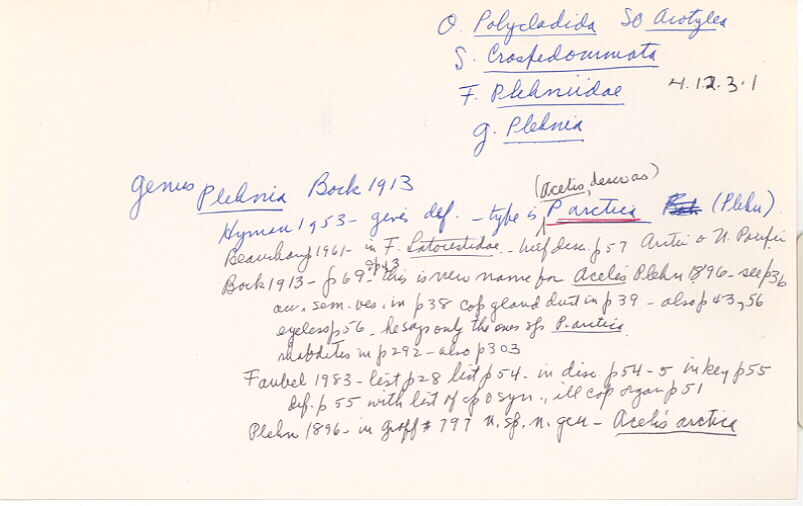 O. Polycladida SO Acotylea
S. Craspedommata
F. Plehniidae 4.12.3.1
G. Plehnia
genus Plehnia Bock 1913
(Acelis, descr as)
Hyman 1953 - gives def. - type is P arctica (Plehn)
Beauchamp 1961 - in F. Latocestidae - brief desc. p 57 Arctic o N. Pacific
Bock 1913 - p 69 - this is new name for Acelis Plehn 1896 - see p 36
acc. sem. ves. in p 38 cop gland duct in p 39 - also p 43, 56
eyeless p 56 - he says only the one sp P. arctica
rhabdites in p 292 - also p 303
Faubel 1983 - list p 28 list p 54 - in disc. p 54-5 in key p 55
def. p 55 with list of sp o syn., ill cop organ p 51
Plehn 1896 - in Graff # 797 n. sp. n. gen - Acelis arctica